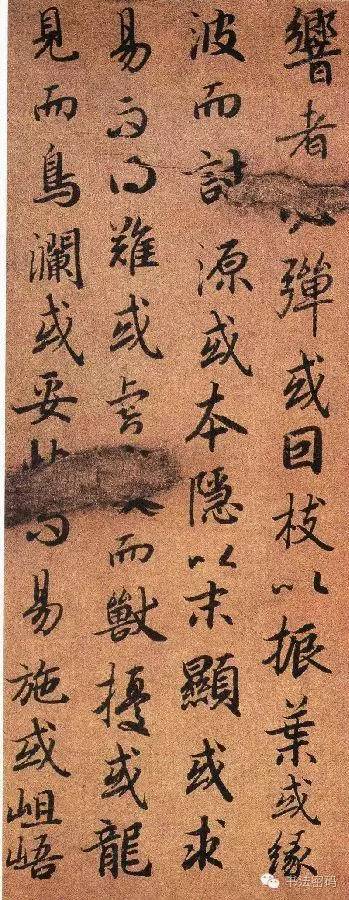 響者彈或因枝以振葉或緣
波而討源或本隱以末顯或求
易而得難或虎而獸擾或龍
見而鳥瀾或妥而易施或岨峿
书法密码